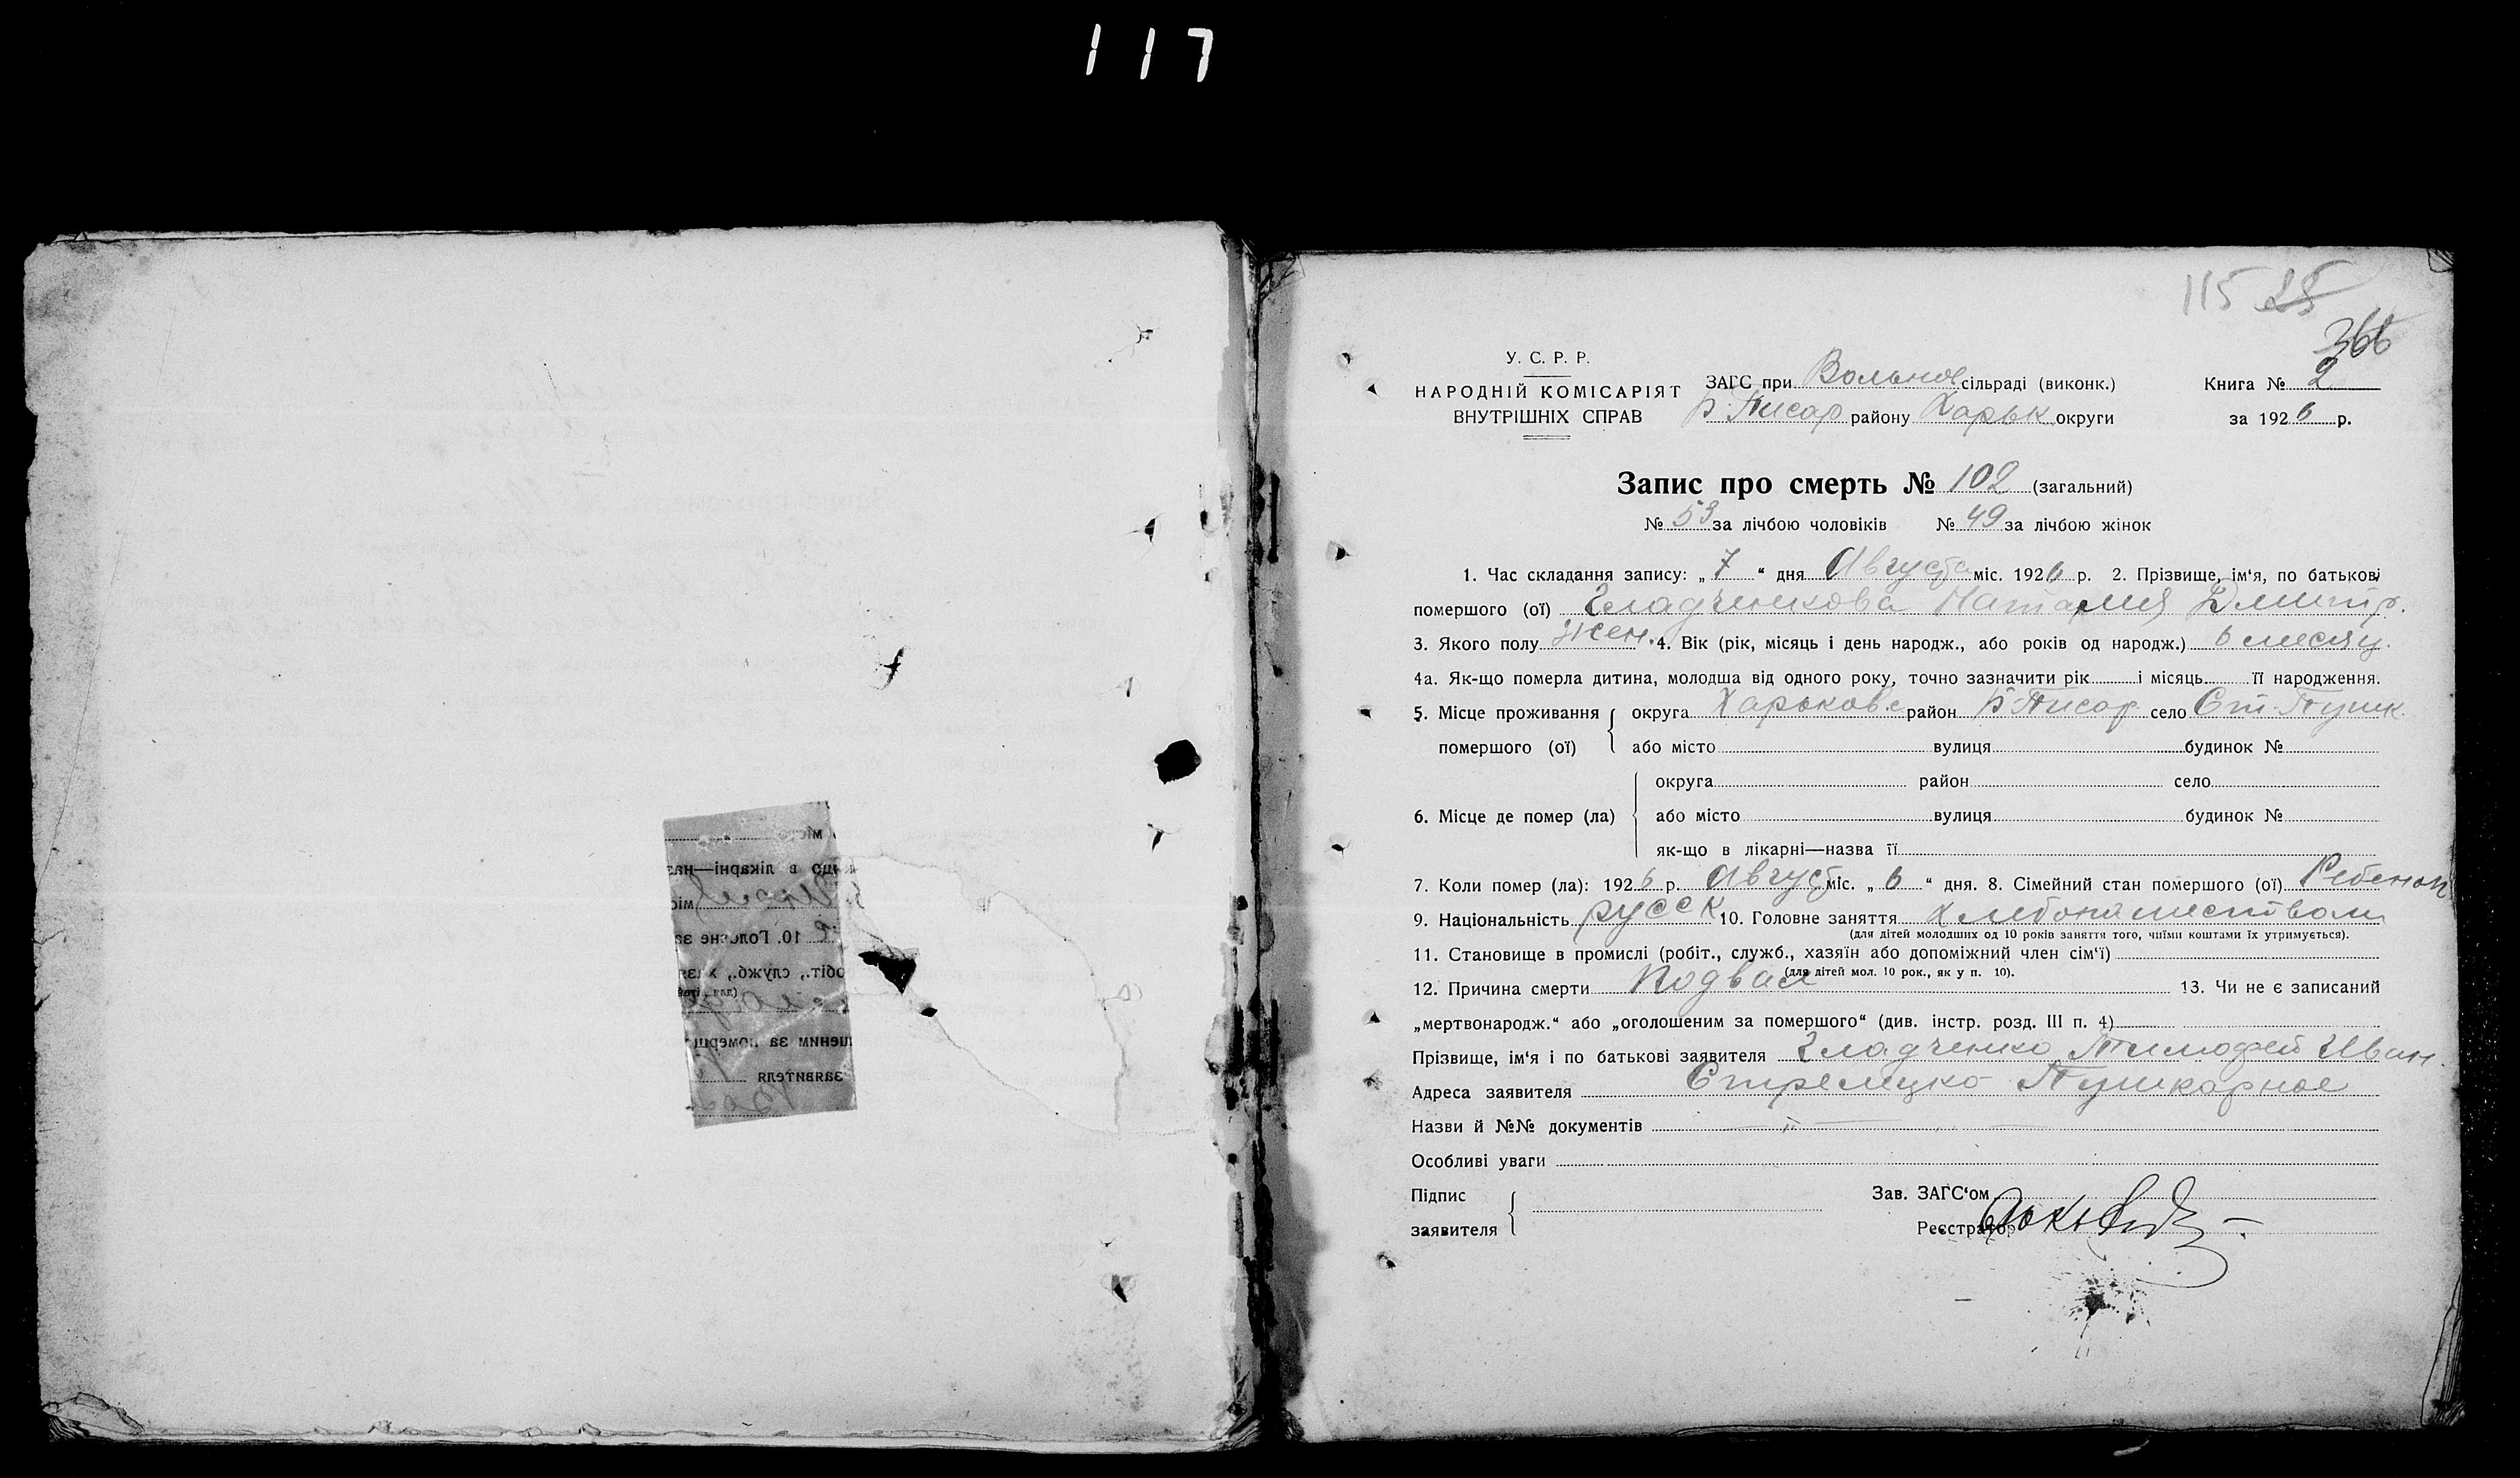 117
115 25
366
У. С. Р. Р.
НАРОДНІЙ КОМІСАРІЯТ
ВНУТРІШНІХ СПРАВ
ЗАГС при Вольнов сільраді (виконк.)
Р. Писар району Харьк округи
Книга № 2
за 1926 р.
Запис про смерть № 102 (загальний)
№ 53 за лічбою чоловіків № 49 за лічбою жінок
1. Час складання запису: „7“ дня Августа міс. 1926 р. 2. Прізвище, ім‘я, по батькові
помершого (ої) Гладченкова Наталия Дмитр.
3. Якого полу Жен. 4. Вік (рік, місяць і день народж., або років од народж.) 6 месяц.
4а. Як-що померла дитина, молодша від одного року, точно зазначити рік і місяць її народження.
5. Місце проживання помершого (ої) округа Харьковс район Р-Писар село Ст-Пушк
або місто вулиця будинок №
6. Місце де помер (ла) округа район село
або місто вулиця будинок №
як-що в лікарні—назва її
7. Коли помер (ла): 1926 р. Август міс. „6“ дня. 8. Сімейний стан помершого (ої) Ребенок
9. Національність русск 10. Головне заняття Хлебопашеством
(для дітей молодших од 10 років заняття того, чиїми коштами їх утримується).
11. Становище в промислі (робіт., служб., хазяїн або допоміжний член сім‘ї)
(для дітей мол. 10 рок., як у п. 10).
12. Причина смерти 13. Чи не є записаний
„мертвонародж.“ або „оголошеним за помершого“ (див. інстр. розд. III п. 4)
Прізвище, ім‘я і по батькові заявителя Гладченко Тимофей Иван.
Адреса заявителя Стрелецко Пушкарное
Назви й №№ документів
Особливі уваги
Підпис
заявителя
Зав. ЗАГС‘ом
Реєстратор
місто
що в лікарні—наз
міс
10. Головне за
робіт., служб., хазя
(для дітей
шеним за помер
заявителя